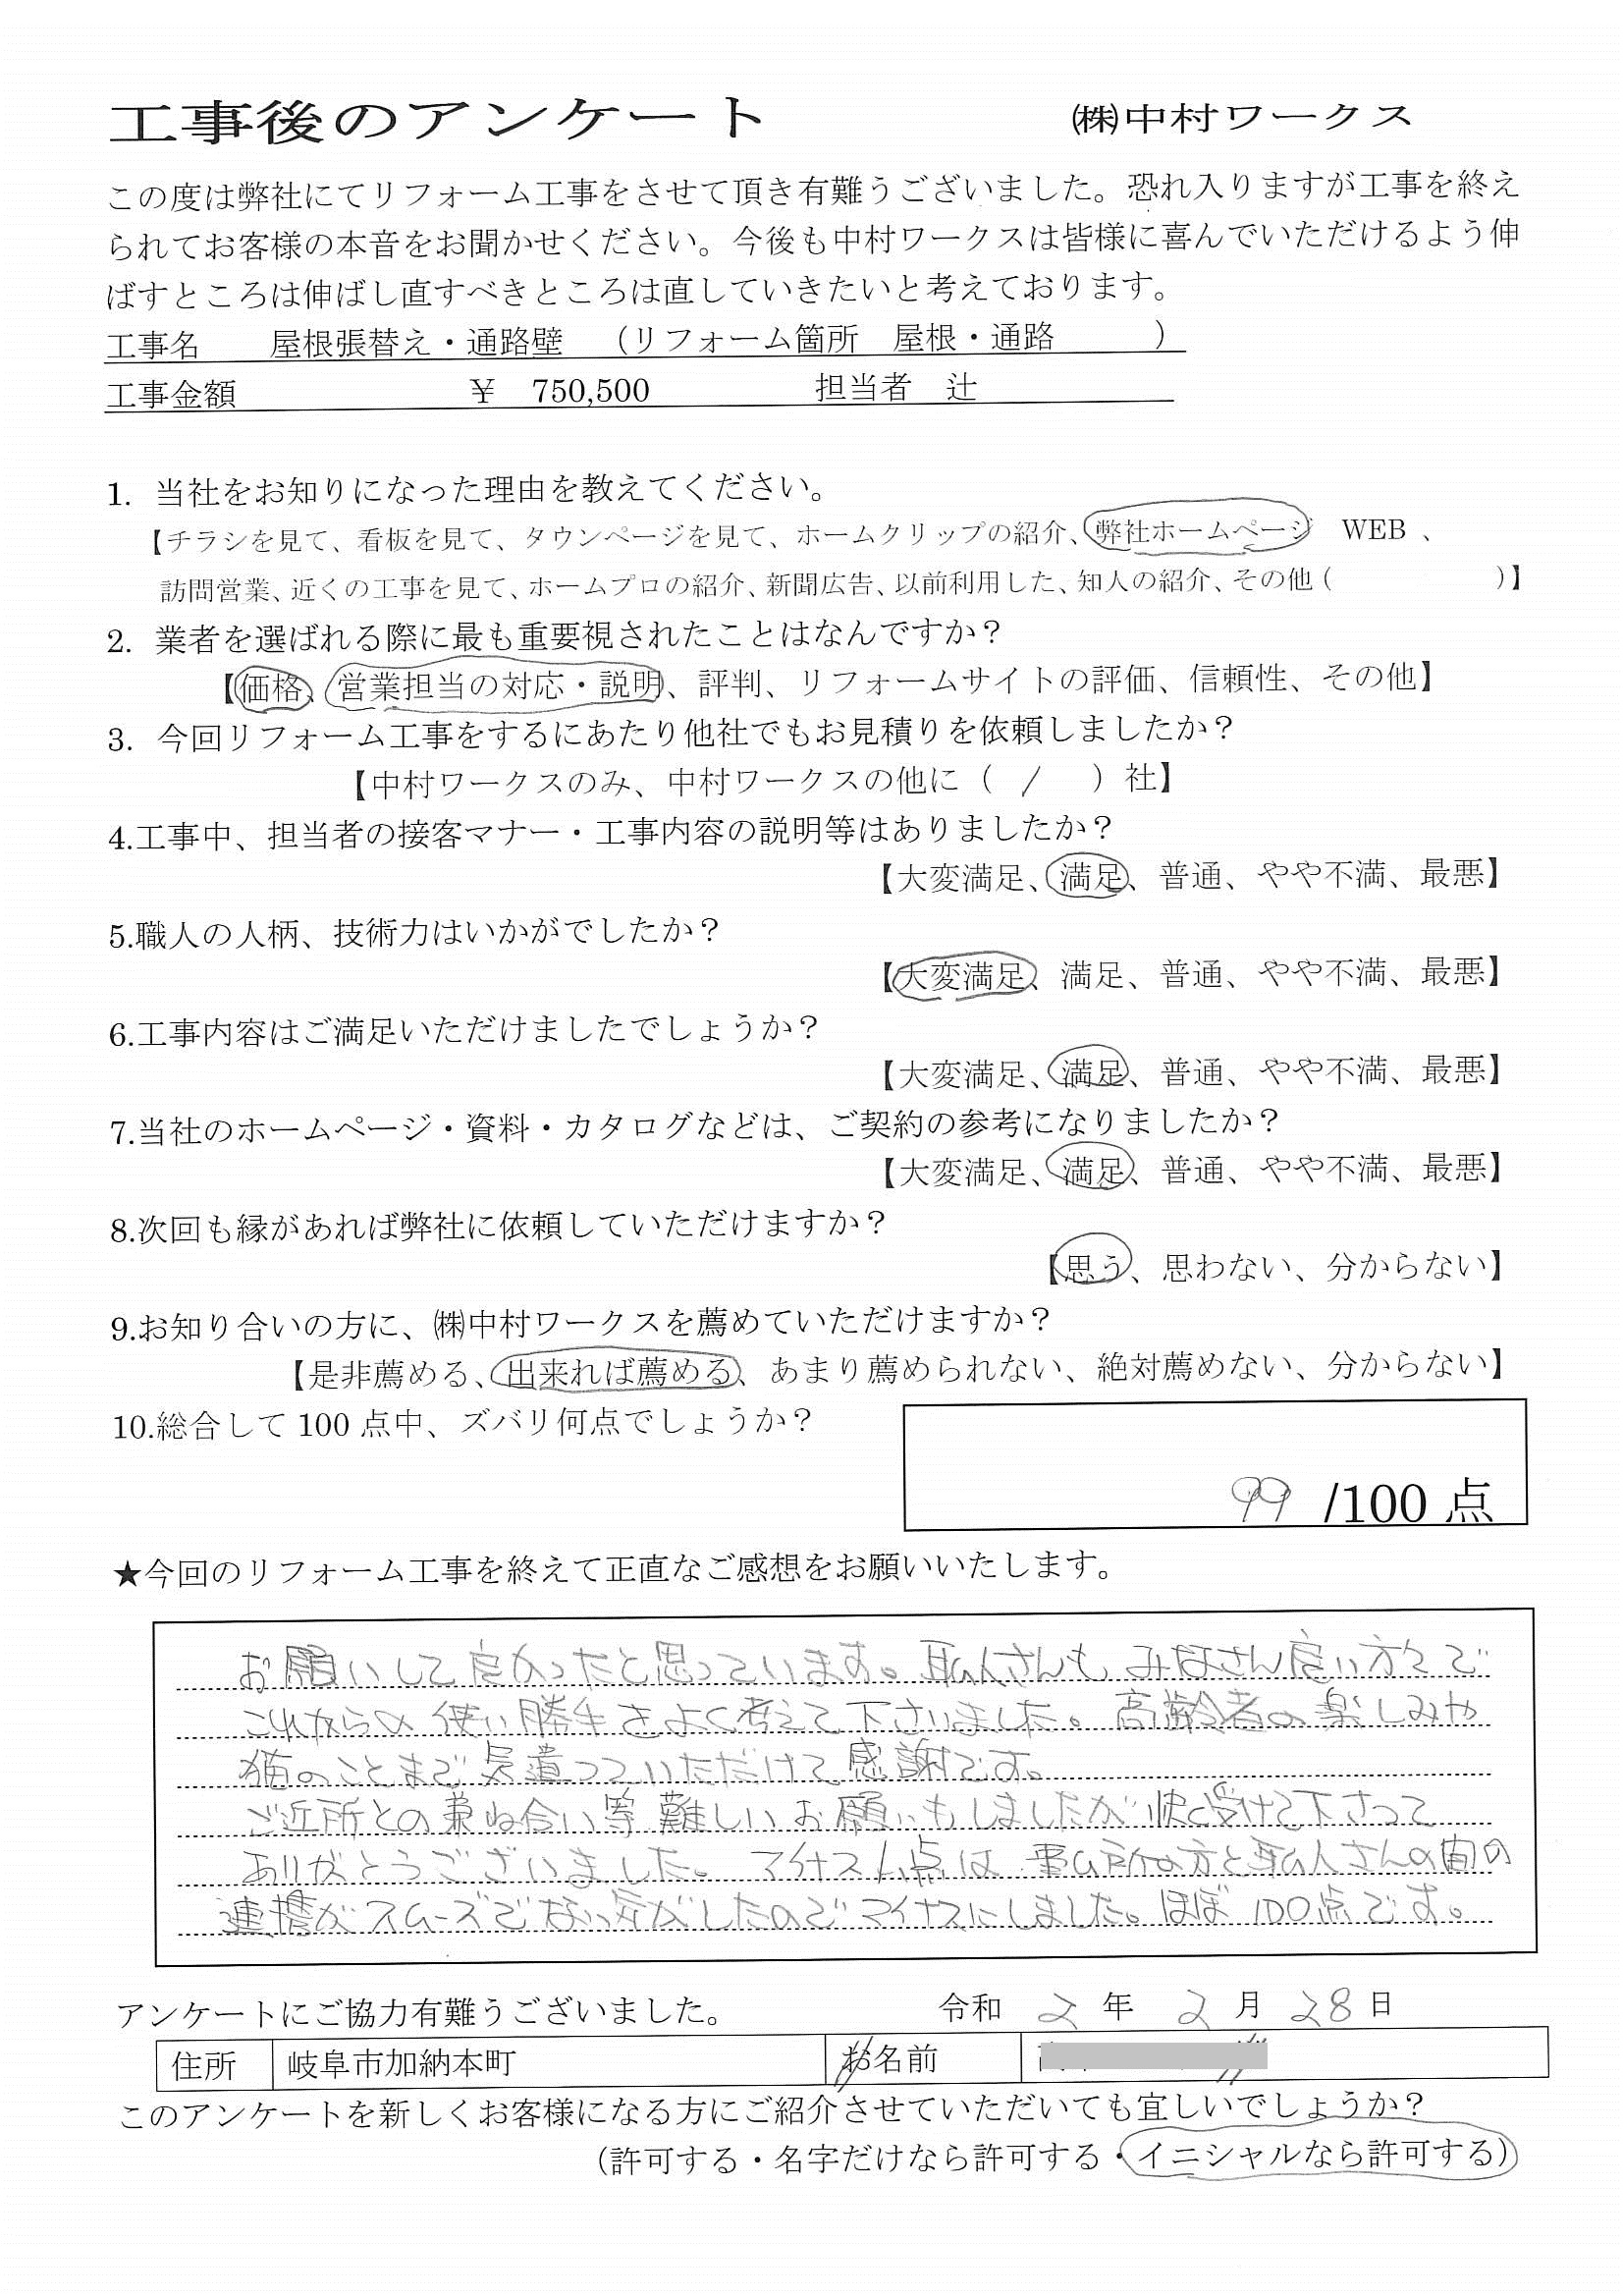 工事後のアンケート ㈱中村ワークス
この度は弊社にてリフォーム工事をさせて頂き有難うございました。恐れ入りますが工事を終え
られてお客様の本音をお聞かせください。今後も中村ワークスは皆様に喜んでいただけるよう伸
ばすところは伸ばし直すべきところは直していきたいと考えております。
工事名 屋根張替え・通路壁 (リフォーム箇所 屋根・通路 )
工事金額 ¥ 750,500 担当者 辻
1. 当社をお知りになった理由を教えてください。
【チラシを見て、看板を見て、タウンページを見て、ホームクリップの紹介、弊社ホームページ WEB 、
訪問営業、近くの工事を見て、ホームプロの紹介、新聞広告、以前利用した、知人の紹介、その他( )】
2. 業者を選ばれる際に最も重要視されたことはなんですか?
【価格、営業担当の対応・説明、評判、リフォームサイトの評価、信頼性、その他】
3. 今回リフォーム工事をするにあたり他社でもお見積りを依頼しましたか?
【中村ワークスのみ、中村ワークスの他に( / )社】
4.工事中、担当者の接客マナー・工事内容の説明等はありましたか?
【大変満足、満足、普通、やや不満、最悪】
5.職人の人柄、技術力はいかがでしたか?
【大変満足、満足、普通、やや不満、最悪】
6.工事内容はご満足いただけましたでしょうか?
【大変満足、満足、普通、やや不満、最悪】
7.当社のホームページ・資料・カタログなどは、ご契約の参考になりましたか?
【大変満足、満足、普通、やや不満、最悪】
8.次回も縁があれば弊社に依頼していただけますか?
【思う、思わない、分からない】
9.お知り合いの方に、㈱中村ワークスを薦めていただけますか?
【是非薦める、出来れば薦める、あまり薦められない、絶対薦めない、分からない】
10.総合して 100 点中、ズバリ何点でしょうか?
99 /100 点
★今回のリフォーム工事を終えて正直なご感想をお願いいたします。
お願いして良かったと思っています。職人さんも、みなさん良い方々で
これからの使い勝手をよく考えて下さいました。高齢者の楽しみや
猫のことまで気遣っていただけて感謝です。
ご近所との兼ね合い等難しいお願いもしましたが快く受けて下さって
ありがとうございました。マイナス1点は 事ム所の方と職人さんの間の
連携がスムーズでない気がしたのでマイナスにしました。ほぼ100点です。
アンケートにご協力有難うございました。 令和 2 年 2 月 28 日
住所 岐阜市加納本町 お名前
このアンケートを新しくお客様になる方にご紹介させていただいても宜しいでしょうか?
(許可する・名字だけなら許可する・イニシャルなら許可する)